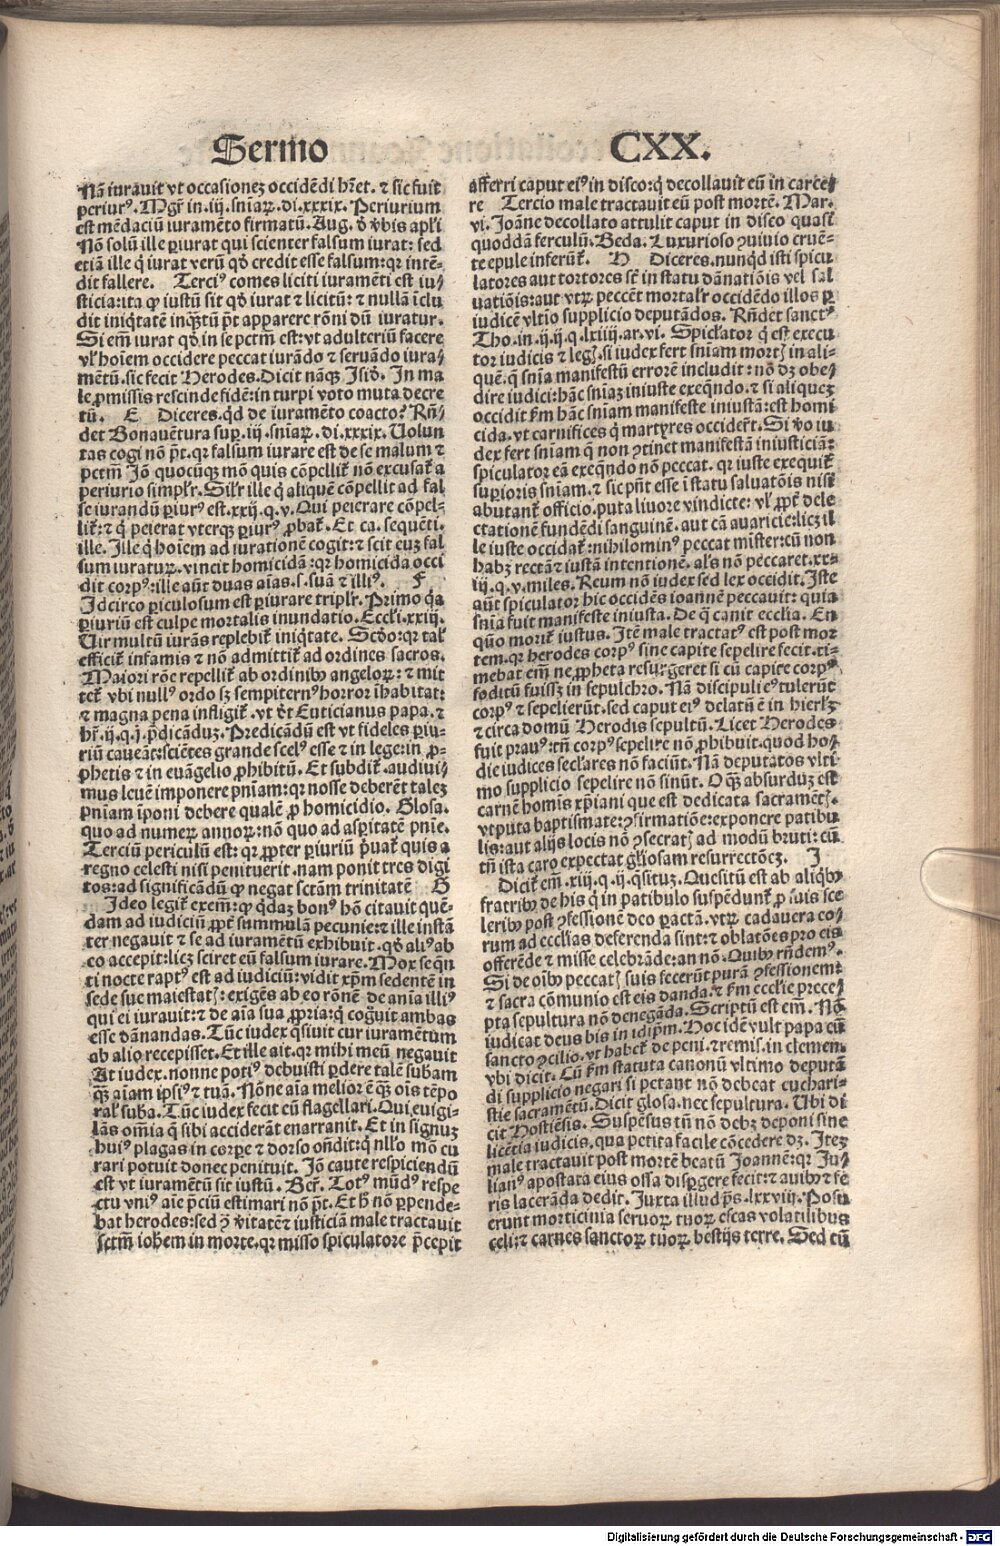 Sermo CXX.
Nā iuravit vt occasionez occidēdi hr̄et. ⁊ sic fuit
periurꝰ. Mgr̄ in .iij. sniaꝝ. di. xxxix. Periurium
est mēdaciū iuramēto firmatū. Aug. ď v̄bis apl̓i
Nō solū ille ꝑiurat qui scienter falsum iurat: sed
etiā ille q̇ iurat verū qď credit esse falsum: qꝛ intē-
dit fallere. Terciꝰ comes liciti iuramēti est iu-
sticia: ita ꝙ iustū sit qď iurat ⁊ licitū: ⁊ nullā īclu
dit iniq̇tatē inq̄ꝫtū p̄t apparere rōni dū iuratur.
Si em̄ iurat qď in se pctm̄ est: vt adulteriū facere
vl̓ hoīem occidere peccat iurādo ⁊ seruādo iura-
mētū. sic fecit Herodes. Dicit nāqꝫ Isiď. In ma
le ꝓmissis rescinde fidē: in turpi voto muta decre
tū. E Diceres. qď de iuramēto coacto? Rn̄-
det Bonauētura suꝑ .iij. sniaꝝ. di. xxxix. Uolun
tas cogi nō p̄t. qꝛ falsum iurare est de se malum ⁊
pctm̄ Jō quocūqꝫ mō quis cōpellit̄ nō excusat̄ a
periurio simpl̓r. Sil̓r ille q̇ aliquē cōpellit ad fal
se iurandū ꝑiurꝰ est. xxij. q. v. Qui peierare cōpel-
lit̄: ⁊ q̇ peierat vterqꝫ ꝑiurꝰ ꝓbat̄. Et ca. sequēti.
ille. Ille q̇ hoīem ad iurationē cogit: ⁊ scit euꝫ fal
sum iuratuꝝ. vincit homicidā: qꝛ homicida occi
dit corpꝰ: ille aūt duas aīas. s. suā ⁊ illiꝰ. F
Idcirco ꝑiculosum est ꝑiurare tripl̓r. Primo q̇a
ꝑiuriū est culpe mortalis inundatio. Eccl̓i. xxiij.
Uir multū iurās replebit̄ iniq̇tate. Scďo: qꝛ tal̓
efficit̄ infamis ⁊ nō admittit̄ ad ordines sacros.
Maiori rōe repellit̄ ab ordinibꝰ angeloꝝ: ⁊ mit
tet̄ vbi nullꝰ ordo sꝫ sempiternꝰ horror īhabitat:
⁊ magna pena infligit̄. vt ďt Euticianus papa. ⁊
hr̄. ij. q. j. p̄dicāduꝫ. Predicādū est vt fideles ꝑiu-
riū caueāt: sciētes grande scelꝰ esse ⁊ in lege: in ꝓ-
phetis ⁊ in euāgelio ꝓhibitū. Et subdit̄. audiui-
mus leuē imponere pn̄iam: qꝛ nosse deberēt taleꝫ
pn̄iam īponi debere qualē ꝓ homicidio. Glosa.
quo ad numeꝝ annoꝝ: nō quo ad asꝑitatē pnīe.
Terciū periculū est: qꝛ ꝓpter ꝑiuriū p̄uat̄ quis a
regno celesti nisi penituerit. nam ponit tres digi
tos: ad significādū ꝙ negat sctām trinitatē G
Ideo legit̄ exem̄: ꝙ q̇daꝫ bonꝰ hō citauit quē-
dam ad iudiciū ꝓpt̄ summulā pecunie: ⁊ ille instā
ter negauit ⁊ se ad iuramētū exhibuit. qď aliꝰ ab
eo accepit: licꝫ sciret eū falsum iurare. Mox seq̄n
ti nocte raptꝰ est ad iudiciū: vidit xp̄m sedentē in
sede sue maiestatꝭ: exigēs ab eo rōnē de anīa illiꝰ
qui ei iurauit: ⁊ de aīa sua ꝓpria: q̇ cog̈uit ambas
esse dānandas. Tūc iudex q̄siuit cur iuramētum
ab alio recepisset. Et ille ait. qꝛ mihi meū negauit
At iudex. nonne potiꝰ debuisti ꝑdere talē subam
q̄ꝫ aīam ipsiꝰ ⁊ tuā. Nōne aīa melior ē q̄ꝫ oīs tēpo
ral̓ suba. Tūc iudex fecit eū flagellari. Qui euigi-
lās om̄ia q̄ sibi acciderāt enarranit. Et in signuꝫ
huiꝰ plagas in corꝑe ⁊ dorso ondit: q̇ nll̓o mō cu
rari potuit donec penituit. Jō caute respiciendū
est vt iuramētū sit iustū. Bern̄. Totꝰ mūdꝰ respe
ctu vniꝰ aīe p̄ciū estimari nō p̄t. Et h̄ nō ꝑpende-
bat herodes: sed ꝯ̄ v̄itatē ⁊ iusticiā male tractauit
sctm̄ ioh̄em in morte. qꝛ misso spiculatore p̄cepit
afferri caput eiꝰ in disco: q̇ decollauit eū in carce-
re Tercio male tractauit eū post mortē. Mar.
vi. Joāne decollato attulit caput in disco quasi
quoddā ferculū. Beda. Luxurioso ꝯuiuio cruē-
te epule inferūt̄. H Diceres. nunqď isti spicu
latores aut tortores sīt in statu dānatiōis vel sal
uatiōis: aut vtꝝ peccēt mortal̓r occidēdo illos ꝑ
iudicē vltīo supplicio deputādos. Rn̄det sanctꝰ
Tho. in. ij. ij. q. lxiiij. ar. vi. Spicl̓ator q̇ est execu
tor iudicis ⁊ legꝭ. si iudex fert sniam mortꝭ in ali-
quē. q̄ snia manifestū errorē includit: nō dꝫ obe-
dire iudici: hāc sniaꝫ iniuste exeq̄ndo. ⁊ si aliqueꝫ
occidit ẜm hāc sniam manifeste iniustā: est homi
cida. vt carnifices q̇ martyres occiderūt. Si vo iu
dex fert sniam q̄ non ꝯtinet manifestā iniusticiā:
spiculator eā exeq̄ndo nō peccat. qꝛ iuste exequit̄
suꝑioris sniam. ⁊ sic pn̄t esse ī statu saluatōis nisi
abutant̄ officio. puta liuore vindicte: vl̓ ꝓpt̄ dele
ctationē fundēdi sanguinē. aut cā auaricie: licꝫ il
le iuste occidat̄: nihilominꝰ peccat mīster: cū non
habꝫ rectā ⁊ iustā intentionē. als nō peccaret. xx-
iij. q. v. miles. Reum nō iudex sed lex occidit. Iste
aūt spiculator hic occidēs ioannē peccauit: quia
snia fuit manifeste iniusta. De q̇ canit ecclia. En
quō morit̄ iustus. Itē male tractatꝰ est post mor
tem. qꝛ herodes corpꝰ sine capite sepelire fecit. ti-
mebat em̄ ne ꝓpheta resurgeret si cū capite corpꝰ
foditū fuissꝫ in sepulchro. Nā discipuli eiꝰ tulerūt
corpꝰ ⁊ sepelierūt. sed caput eiꝰ delatū ē in hierlꝫ
⁊ circa domū Herodis sepultū. Licet Herodes
fuit prauꝰ: tn̄ corpꝰ sepelire nō ꝓhibuit. quod ho-
die iudices secl̓ares nō faciūt. Nā deputatos vlti
mo supplicio sepelire nō sinūt. O q̄ꝫ absurduꝫ est
carnē homīs xp̄iani que est dedicata sacramētꝭ.
vtputa baptismate: ꝯfirmatiōe: exponere patibu
lis: aut alijs locis nō ꝯsecratꝭ ad modū bruti: cū
tn̄ ista caro expectat gl̓iosam resurrectōeꝫ. I
Dicit̄ em̄. xiij. q. ij. q̄situꝫ. Quesitū est ab aliqbꝰ
fratribꝰ de his q̇ in patibulo suspēdunt̄ ꝓ suis sce
leribꝰ post ꝯfessionē deo ꝑactā. vtꝝ cadauera eo-
rum ad ecclias deferenda sint: ⁊ oblatōes pro eis
offerēde ⁊ misse celebrāde: an nō. Quibꝰ rn̄demꝰ.
Si de oībꝰ peccatꝭ suis fecerūt purā ꝯfessionem:
⁊ sacra cōmunio est eis danda. ⁊ ẜm ecclie prece-
pta sepultura nō denegāda. Scriptū est em̄. Nō
iudicat deus bis in idip̄m. Hoc idē vult papa cū
sancto ꝯcilio. vt habet̄ de peni. ⁊ remis. in clemen.
vbi dicit. Cū ẜm statuta canonū vltimo deputā
di supplicio negari si petant nō debeat euchari-
stie sacramētū. Dicit glosa. nec sepultura. Ubi di
cit Hostiēsis. Suspēsus tn̄ nō debꝫ deponi sine
licētia iudicis. qua petita facile cōcedere dꝫ. Iteꝫ
male tractauit post mortē beatū Joannē: qꝛ Ju-
lianꝰ apostata eius ossa disꝑgere fecit: ⁊ auibꝰ ⁊ fe
ris lacerāda dedit. Juxta illud ps̄. lxxviij. Posu
erunt morticinia seruoꝝ tuoꝝ escas volatilibus
celi: ⁊ carnes sanctoꝝ tuoꝝ bestijs terre. Sed tū
Digitalisierung gefördert durch die Deutsche Forschungsgemeinschaft - DFG